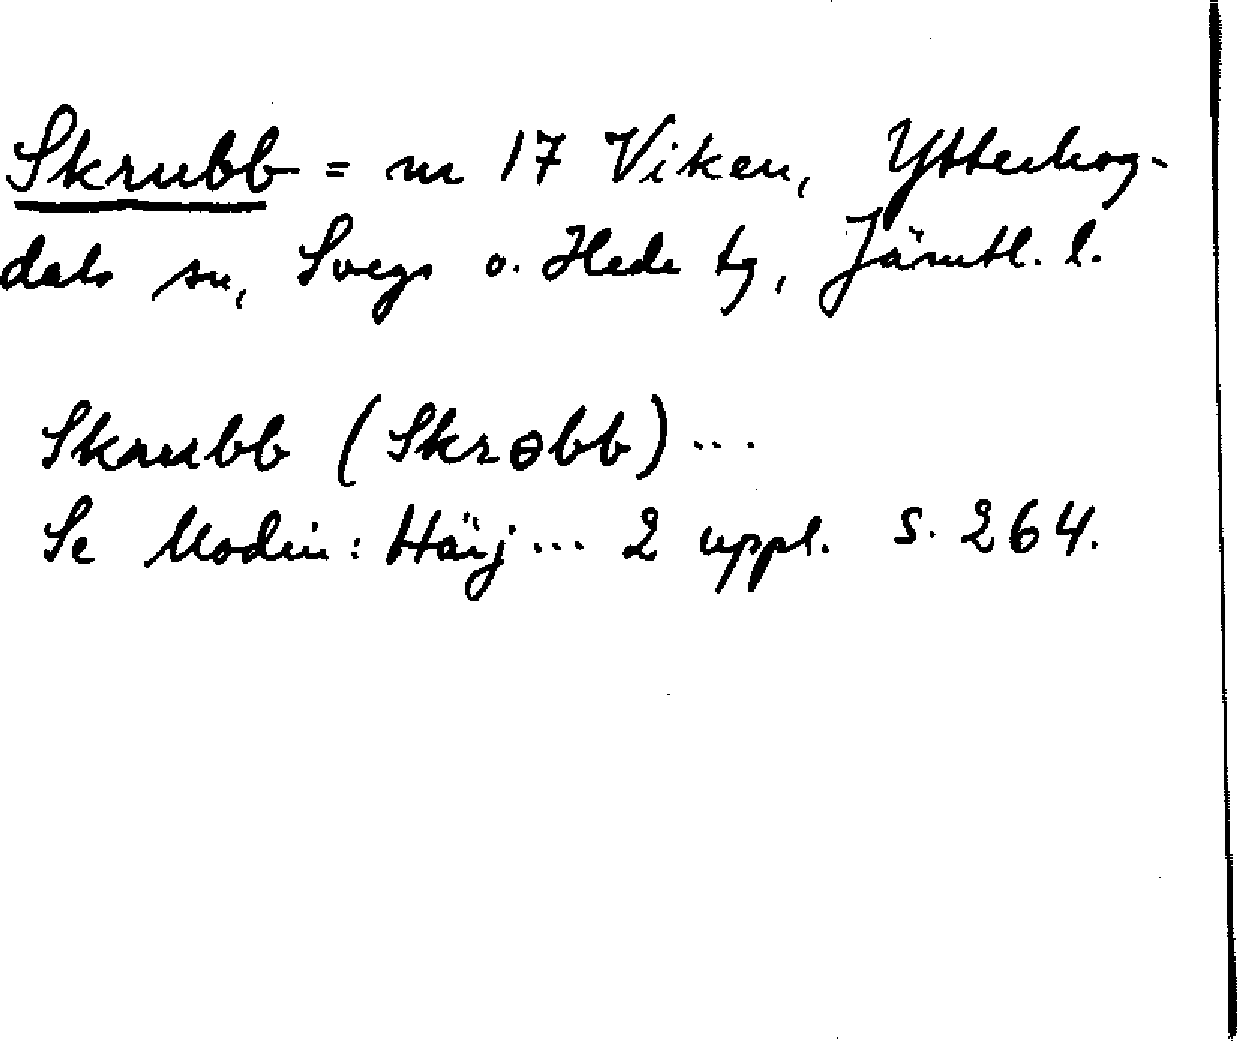 Skrubb = nr 17 Viken, Ytterhog-
dals sn, Svegs o. Hede tg, Jämtl. l.
Skrubb (Skrobb) ...
Se Modin: Härj ... 2 uppl. s. 264.